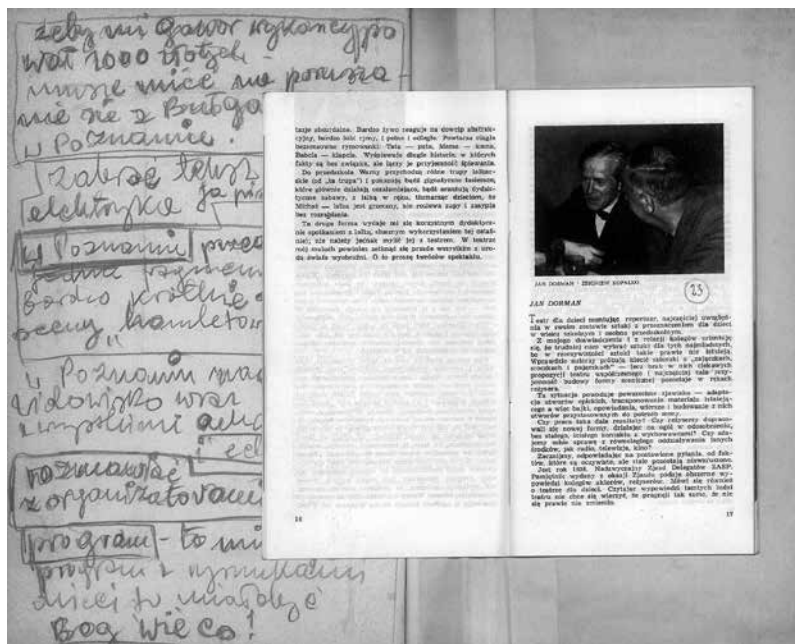 żeby mi gawor wykancypo
wał 1000 złotych -
muszę mieć na porusza-
nie się z Bułga
w Poznaniu.
Zabrać tekst
elektryka ja
w Poznaniu
bardzo krótkie
oceny „hamletow
w Poznaniu
widowisko wraz
wszystkimi
rozmawiać
z organizatorami
program - to mi
program z rysunkami
dzieci to
Bóg wie co!
tazje absurdalne. Bardzo żywo reaguje na dowcip abstrak-
cyjny, bardzo lubi rymy, i pełne i odległe. Powtarza ciągle
bezsensowne rymowanki: Tata — pata, Mama — kama,
Babcia — klapcia. Wyśpiewuje długie historie, w których
fakty są bez związku, ale łączy je przyjemność śpiewania.
Do przedszkola Warny przychodzą różne trupy lalkar-
skie (od „la trupa") i pokazują bądź gigantyczne
które głównie działają oszałamiająco, bądź aranżują dydak-
tyczne zabawy, z lalką w ręku, tłumacząc dzieciom, że
Michał — lalka jest grzeczny, nie rozlewa zupy i zasypia
bez marudzenia.
Ta druga forma wydaje mi się korzystnym dydaktycz-
nie spotkaniem z lalką, słusznym wykorzystaniem tej ostat-
niej; nie należy jednak mylić jej z teatrem. W teatrze
mój maluch powinien zetknąć się przede wszystkim z uro-
dą świata wyobraźni. O to proszę twórców spektaklu.
16
JAN DORMAN - ZBIGNIEW KOPALKO
23
JAN DORMAN
Teatr dla dzieci montując repertuar, najczęściej uwzględ-
nia w swoim zestawie sztuki z przeznaczeniem dla dzieci
w wieku szkolnym i osobno przedszkolnym.
Z mojego doświadczenia i z relacji kolegów orientuję
się, że trudniej nam wybrać sztuki dla tych najmłodszych,
bo w rzeczywistości sztuki takie prawie nie istnieją.
Wprawdzie autorzy próbują klecić utworki o „zajączkach,
kotkach i pajacykach" — lecz brak w nich ciekawych
propozycji teatru współczesnego i najczęściej cała przy-
jemność budowy formy scenicznej pozostaje w rękach
reżysera.
Ta sytuacja powoduje powszechne zjawisko — adapta-
cje utworów epickich, transponowanie materiału istnieją-
cego a więc bajki, opowiadania, wiersze i budowanie z nich
utworów przystosowanych do potrzeb sceny.
Czy praca taka dała rezultaty? Czy rzeczywiście dopraco-
wali się nowej formy, działając na ogół w odosobnieniu,
bez stałego, ścisłego kontaktu z wychowawcami? Czy zda-
jemy sobie sprawę z równoległego oddziaływania innych
środków, jak radio, telewizja, kino?
Zacznijmy, odpowiadając na postawione pytania, od fak-
tów, które są oczywiste, ale stale pozostają niewzruszone.
Jest rok 1938. Nadzwyczajny Zjazd Delegatów ZASP.
Pamiętnik wydany z okazji Zjazdu podaje obszerne wy-
powiedzi kolegów aktorów, reżyserów. Mówi się również
o teatrze dla dzieci. Czytając wypowiedzi tamtych ludzi
teatru nie chce się wierzyć, że pragnęli tak samo, że nic
się prawie nie zmieniło.
17